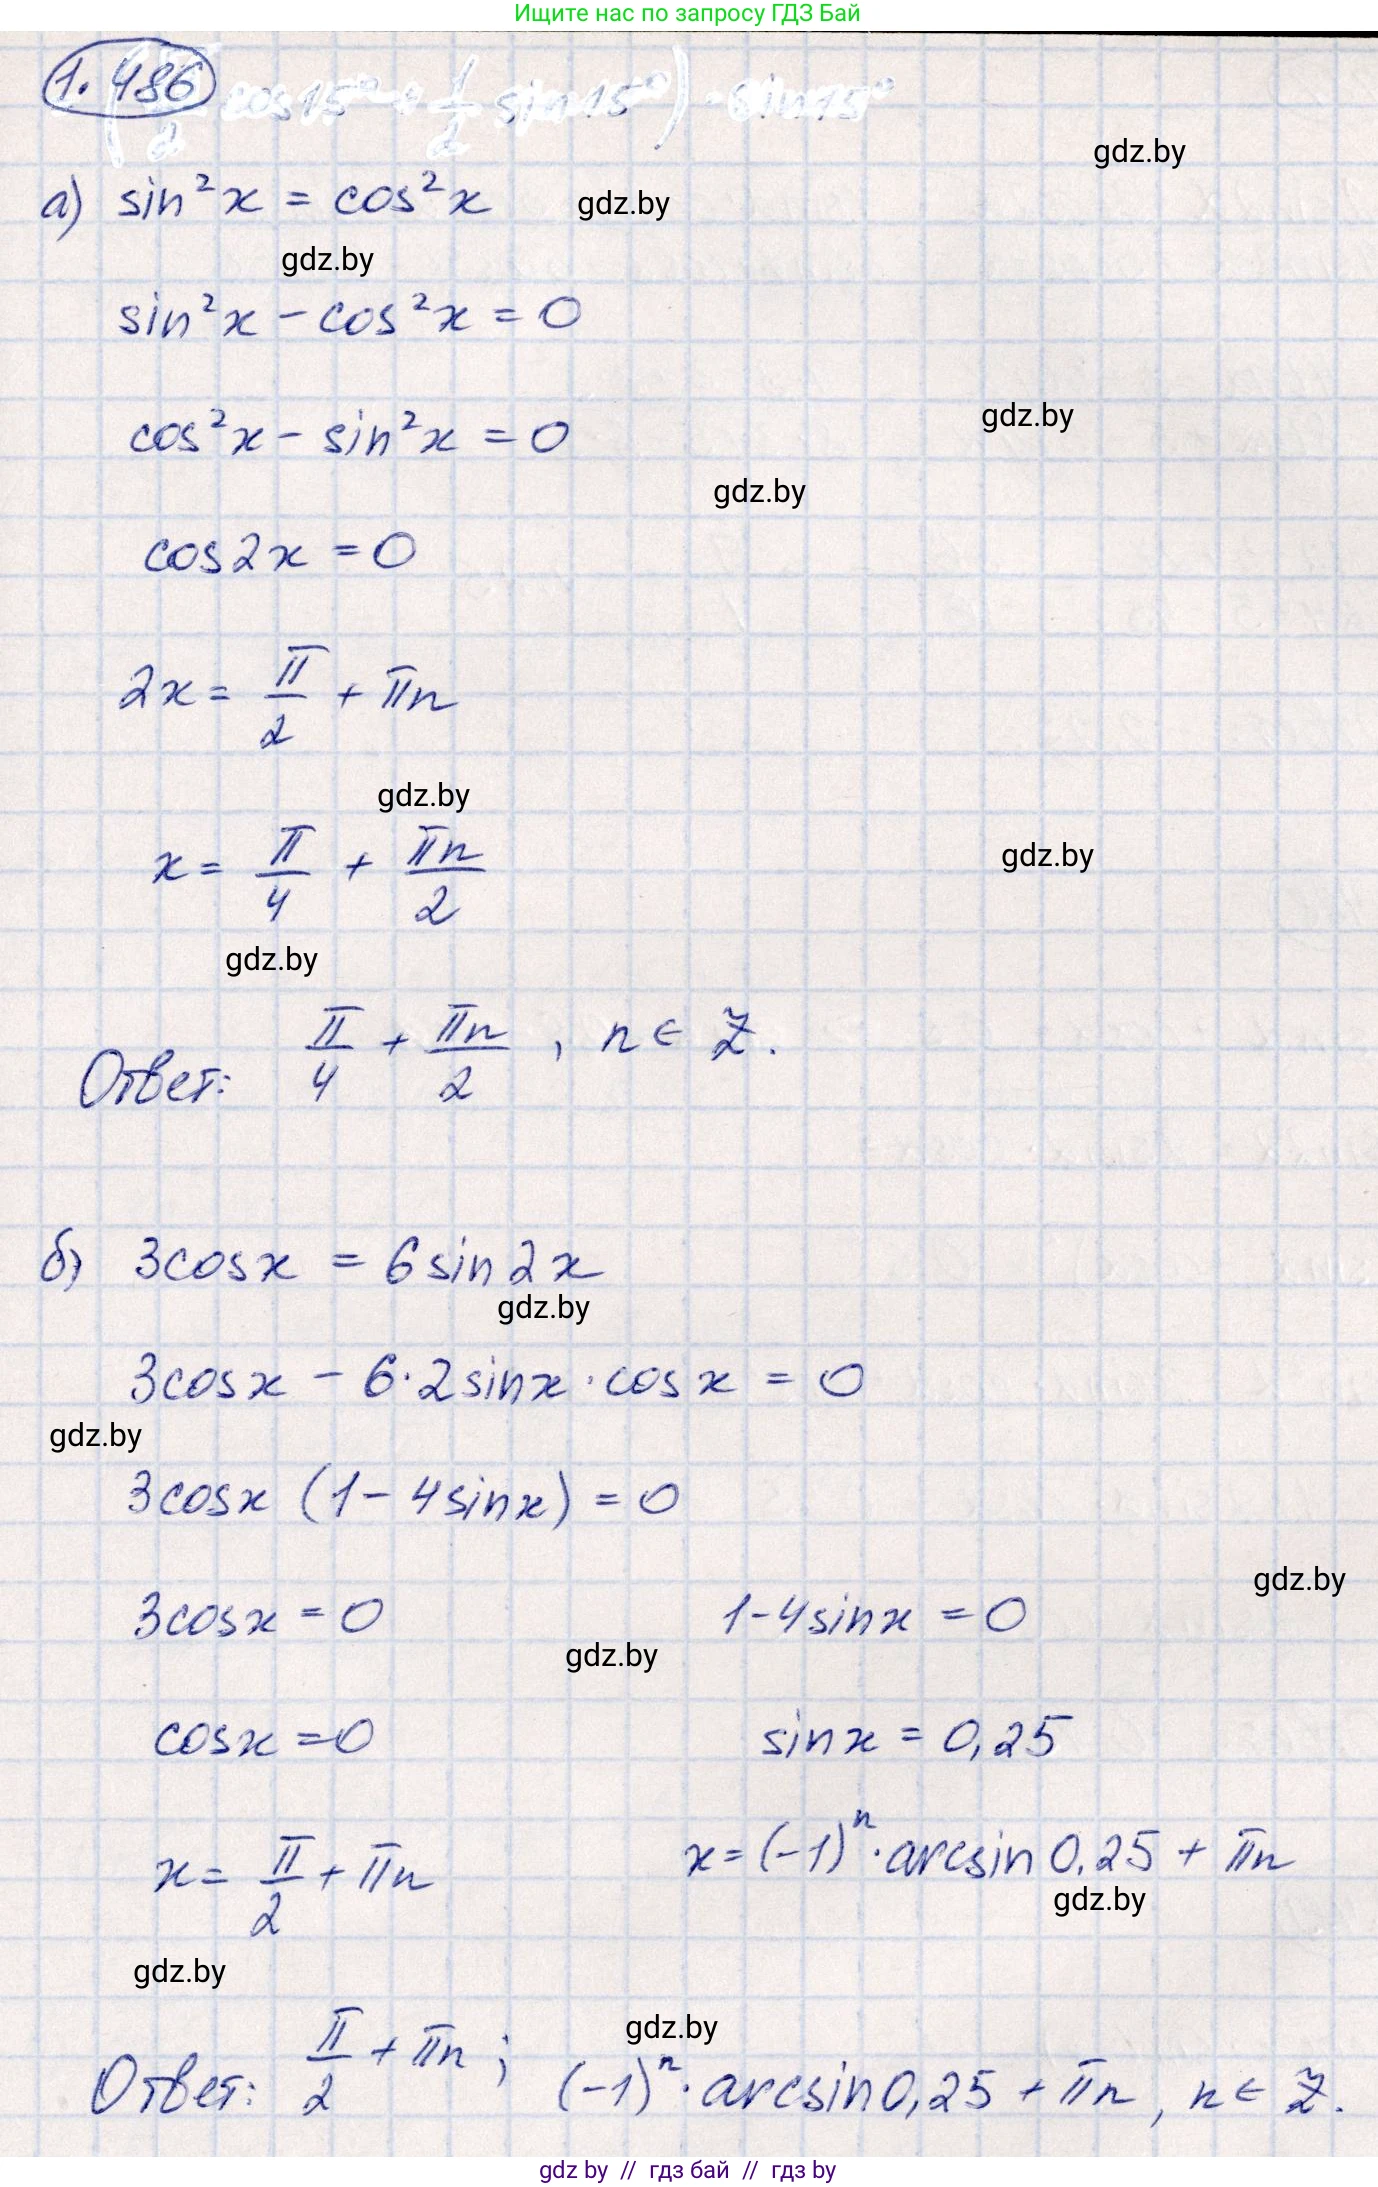 Ищите нас по запросу ГДЗ Бай
1.486
cos15° + 1/2 sin15°) · sin15°
gdz.by
а) sin²x = cos²x
gdz.by
gdz.by
sin²x - cos²x = 0
gdz.by
cos²x - sin²x = 0
gdz.by
cos2x = 0
2x = π/2 + πn
gdz.by
x = π/4 + πn/2
gdz.by
gdz.by
Ответ: π/4 + πn/2, n ∈ Z.
б) 3cosx = 6sin2x
gdz.by
3cosx - 6·2sinx·cosx = 0
gdz.by
3cosx (1 - 4sinx) = 0
gdz.by
3cosx = 0 1-4sinx = 0
gdz.by
cosx = 0 sinx = 0,25
x = π/2 + πn x = (-1)ⁿ·arcsin0,25 + πn
gdz.by
gdz.by
gdz.by
Ответ: π/2 + πn; (-1)ⁿ·arcsin0,25 + πn, n ∈ Z.
gdz by // гдз бай // гдз by